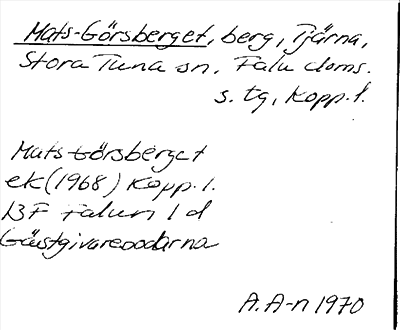 Mats-Görsberget, berg, Tjärna,
Stora Tuna sn. Falu doms.
s. tg, Kopp. l.
Mats Görsberget
ek (1968) Kopp. l.
13F Falun 1 d
Gästgivarebodarna
A. A-n 1970